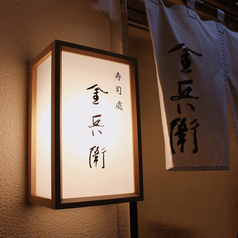 寿司處
金兵衛
金兵衛